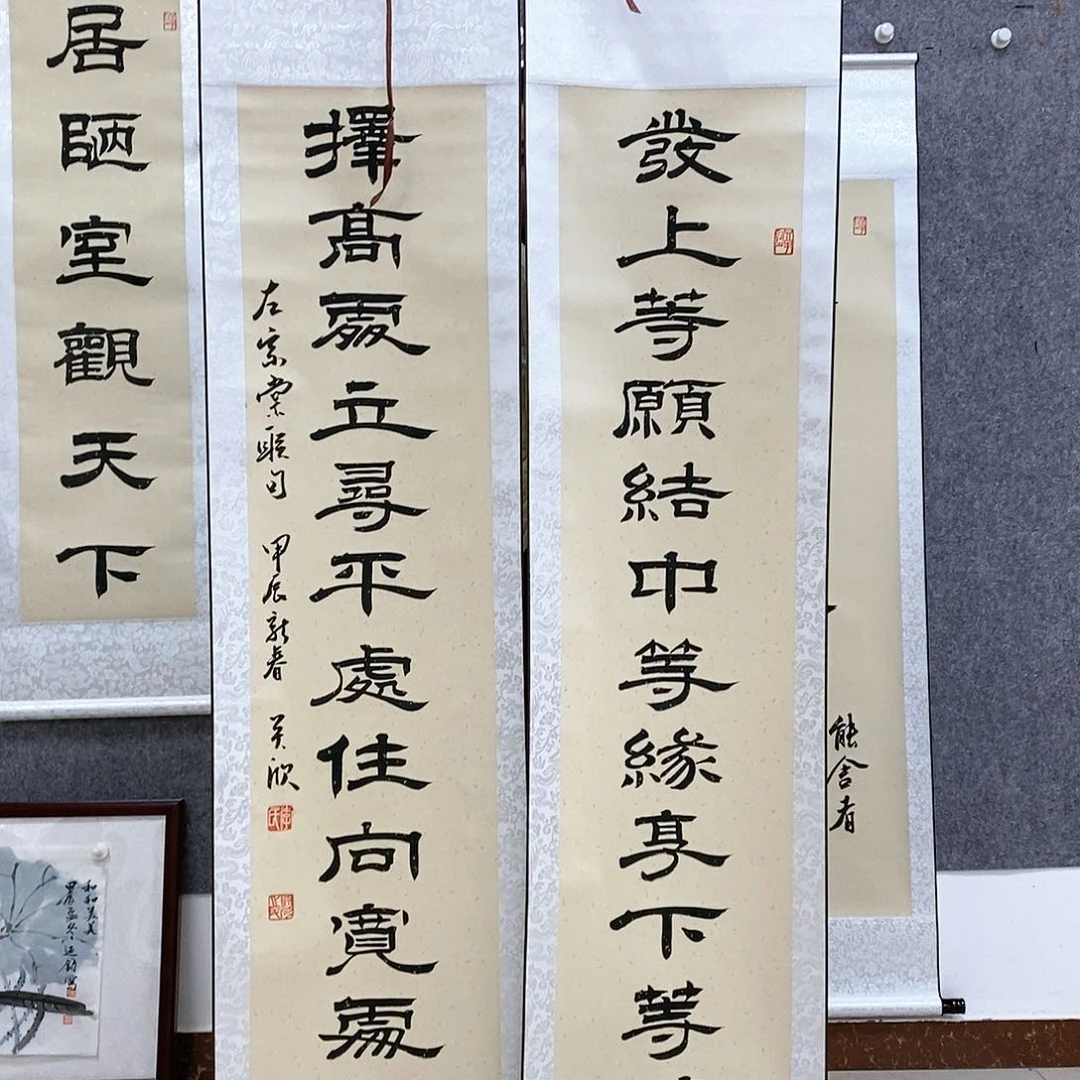 發上等願結中等緣享下等
擇高處立尋平處住向寬處
左宗棠聯句 甲辰新春 吴欣
居陋室觀天下
能舍者
和和美美